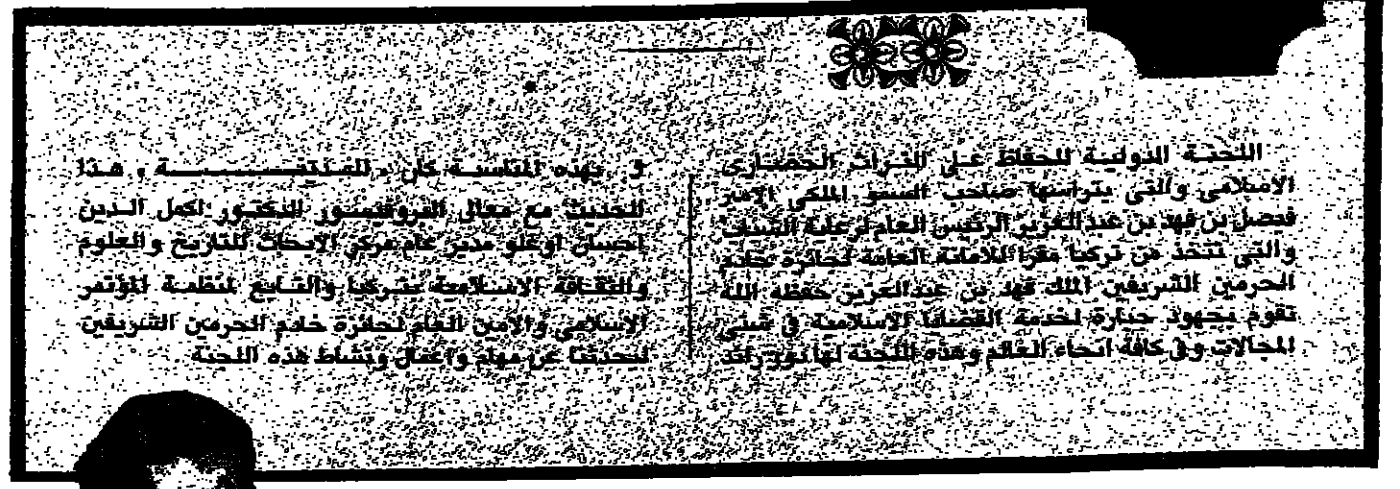 اللجنة الدولية للحفاظ على التراث الحضارى
الاسلامى والتى يتراسها صاحب السمو الملكى الامير
فيصل بن فهد بن عبدالعزيز الرئيس العام لرعاية الشباب
والتى تتخذ من تركيا مقرا للامانة العامة لجائزة خادم
الحرمين الشريفين الملك فهد بن عبدالعزيز حفظه الله
تقوم بجهود جبارة لخدمة القضايا الاسلامية في شتى
المجالات وفي كافة انحاء العالم وهذه اللجنة لها دور رائد
و بهذه المناسبة كان هذا
الحديث مع معالى البروفيسور الدكتور اكمل الدين
احسان اوغلو مدير عام مركز الابحاث للتاريخ والعلوم
والثقافة الاسلامية بتركيا والتابع لمنظمة المؤتمر
الاسلامى والامين العام لجائزة خادم الحرمين الشريفين
ليحدثنا عن مهام واعمال ونشاط هذه اللجنة